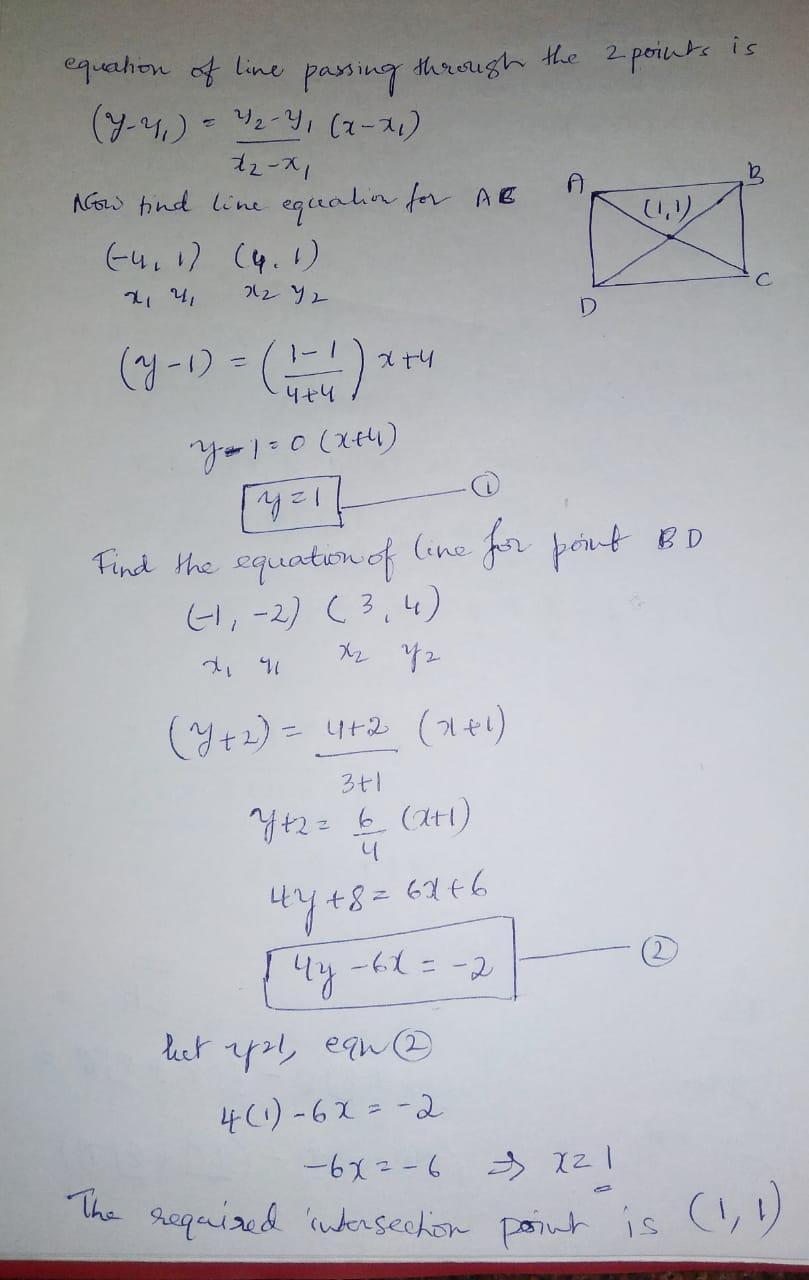 equation of line passing through the 2 points is
(y-y₁) = y₂-y₁ (x-x₁)
x₂-x₁
Now find line equation for AC
A B
(1,1)
(-4, 1) (4, 1)
x₁ y₁ x₂ y₂
D C
(y-1) = (1-1/4+4) x+4
y-1=0 (x+4)
y=1 ①
Find the equation of line for point BD
(-1, -2) (3, 4)
x₁ y₁ x₂ y₂
(y+2) = 4+2 (x+1)
3+1
y+2 = 6 (x+1)
4
4y+8 = 6x+6
4y-6x = -2 ②
let y=1, eqn ②
4(1)-6x = -2
-6x = -6 ⇒ x=1
The required intersection point is (1,1)